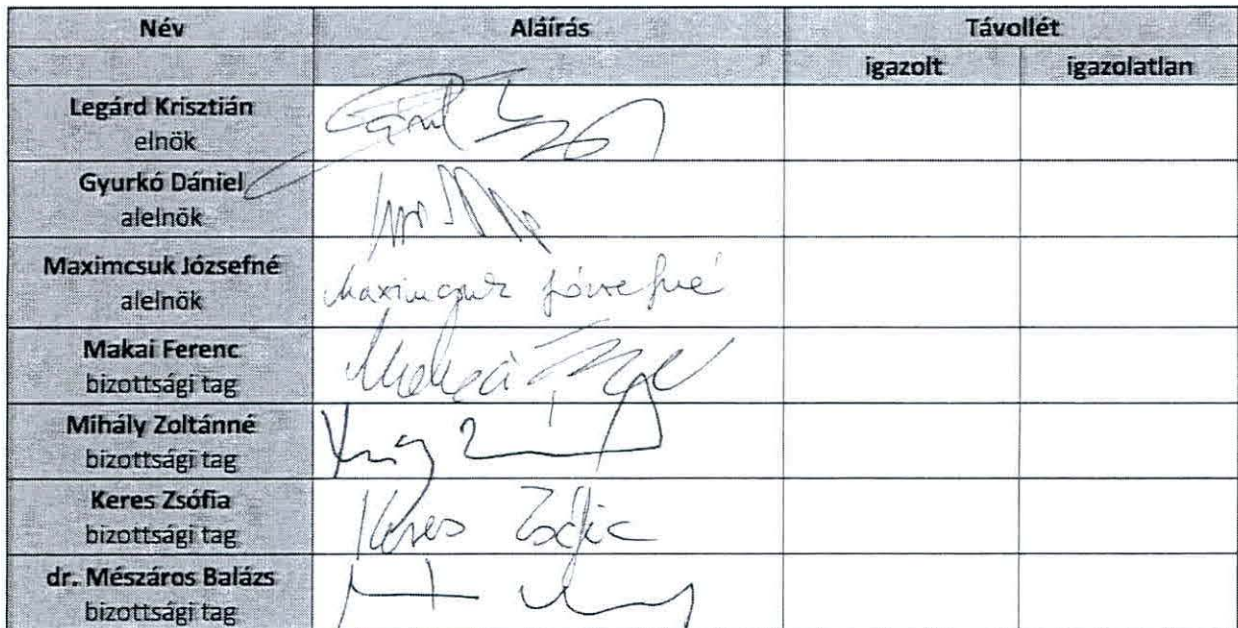 Név Aláírás Távollét
igazolt igazolatlan
Legárd Krisztián
elnök
Gyurkó Dániel
alelnök
Maximcsuk Józsefné Maximcsuk Józsefné
alelnök
Makai Ferenc
bizottsági tag
Mihály Zoltánné
bizottsági tag
Keres Zsófia Keres Zsófia
bizottsági tag
dr. Mészáros Balázs
bizottsági tag